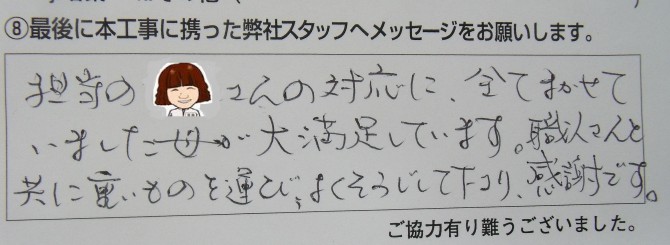 ⑧最後に本工事に携った弊社スタッフへメッセージをお願いします。
担当の さんの対応に、全てまかせて
いましたが大満足しています。職人さんと
共に重いものを運び、よくそうじして下さり、感謝です。
ご協力有り難うございました。